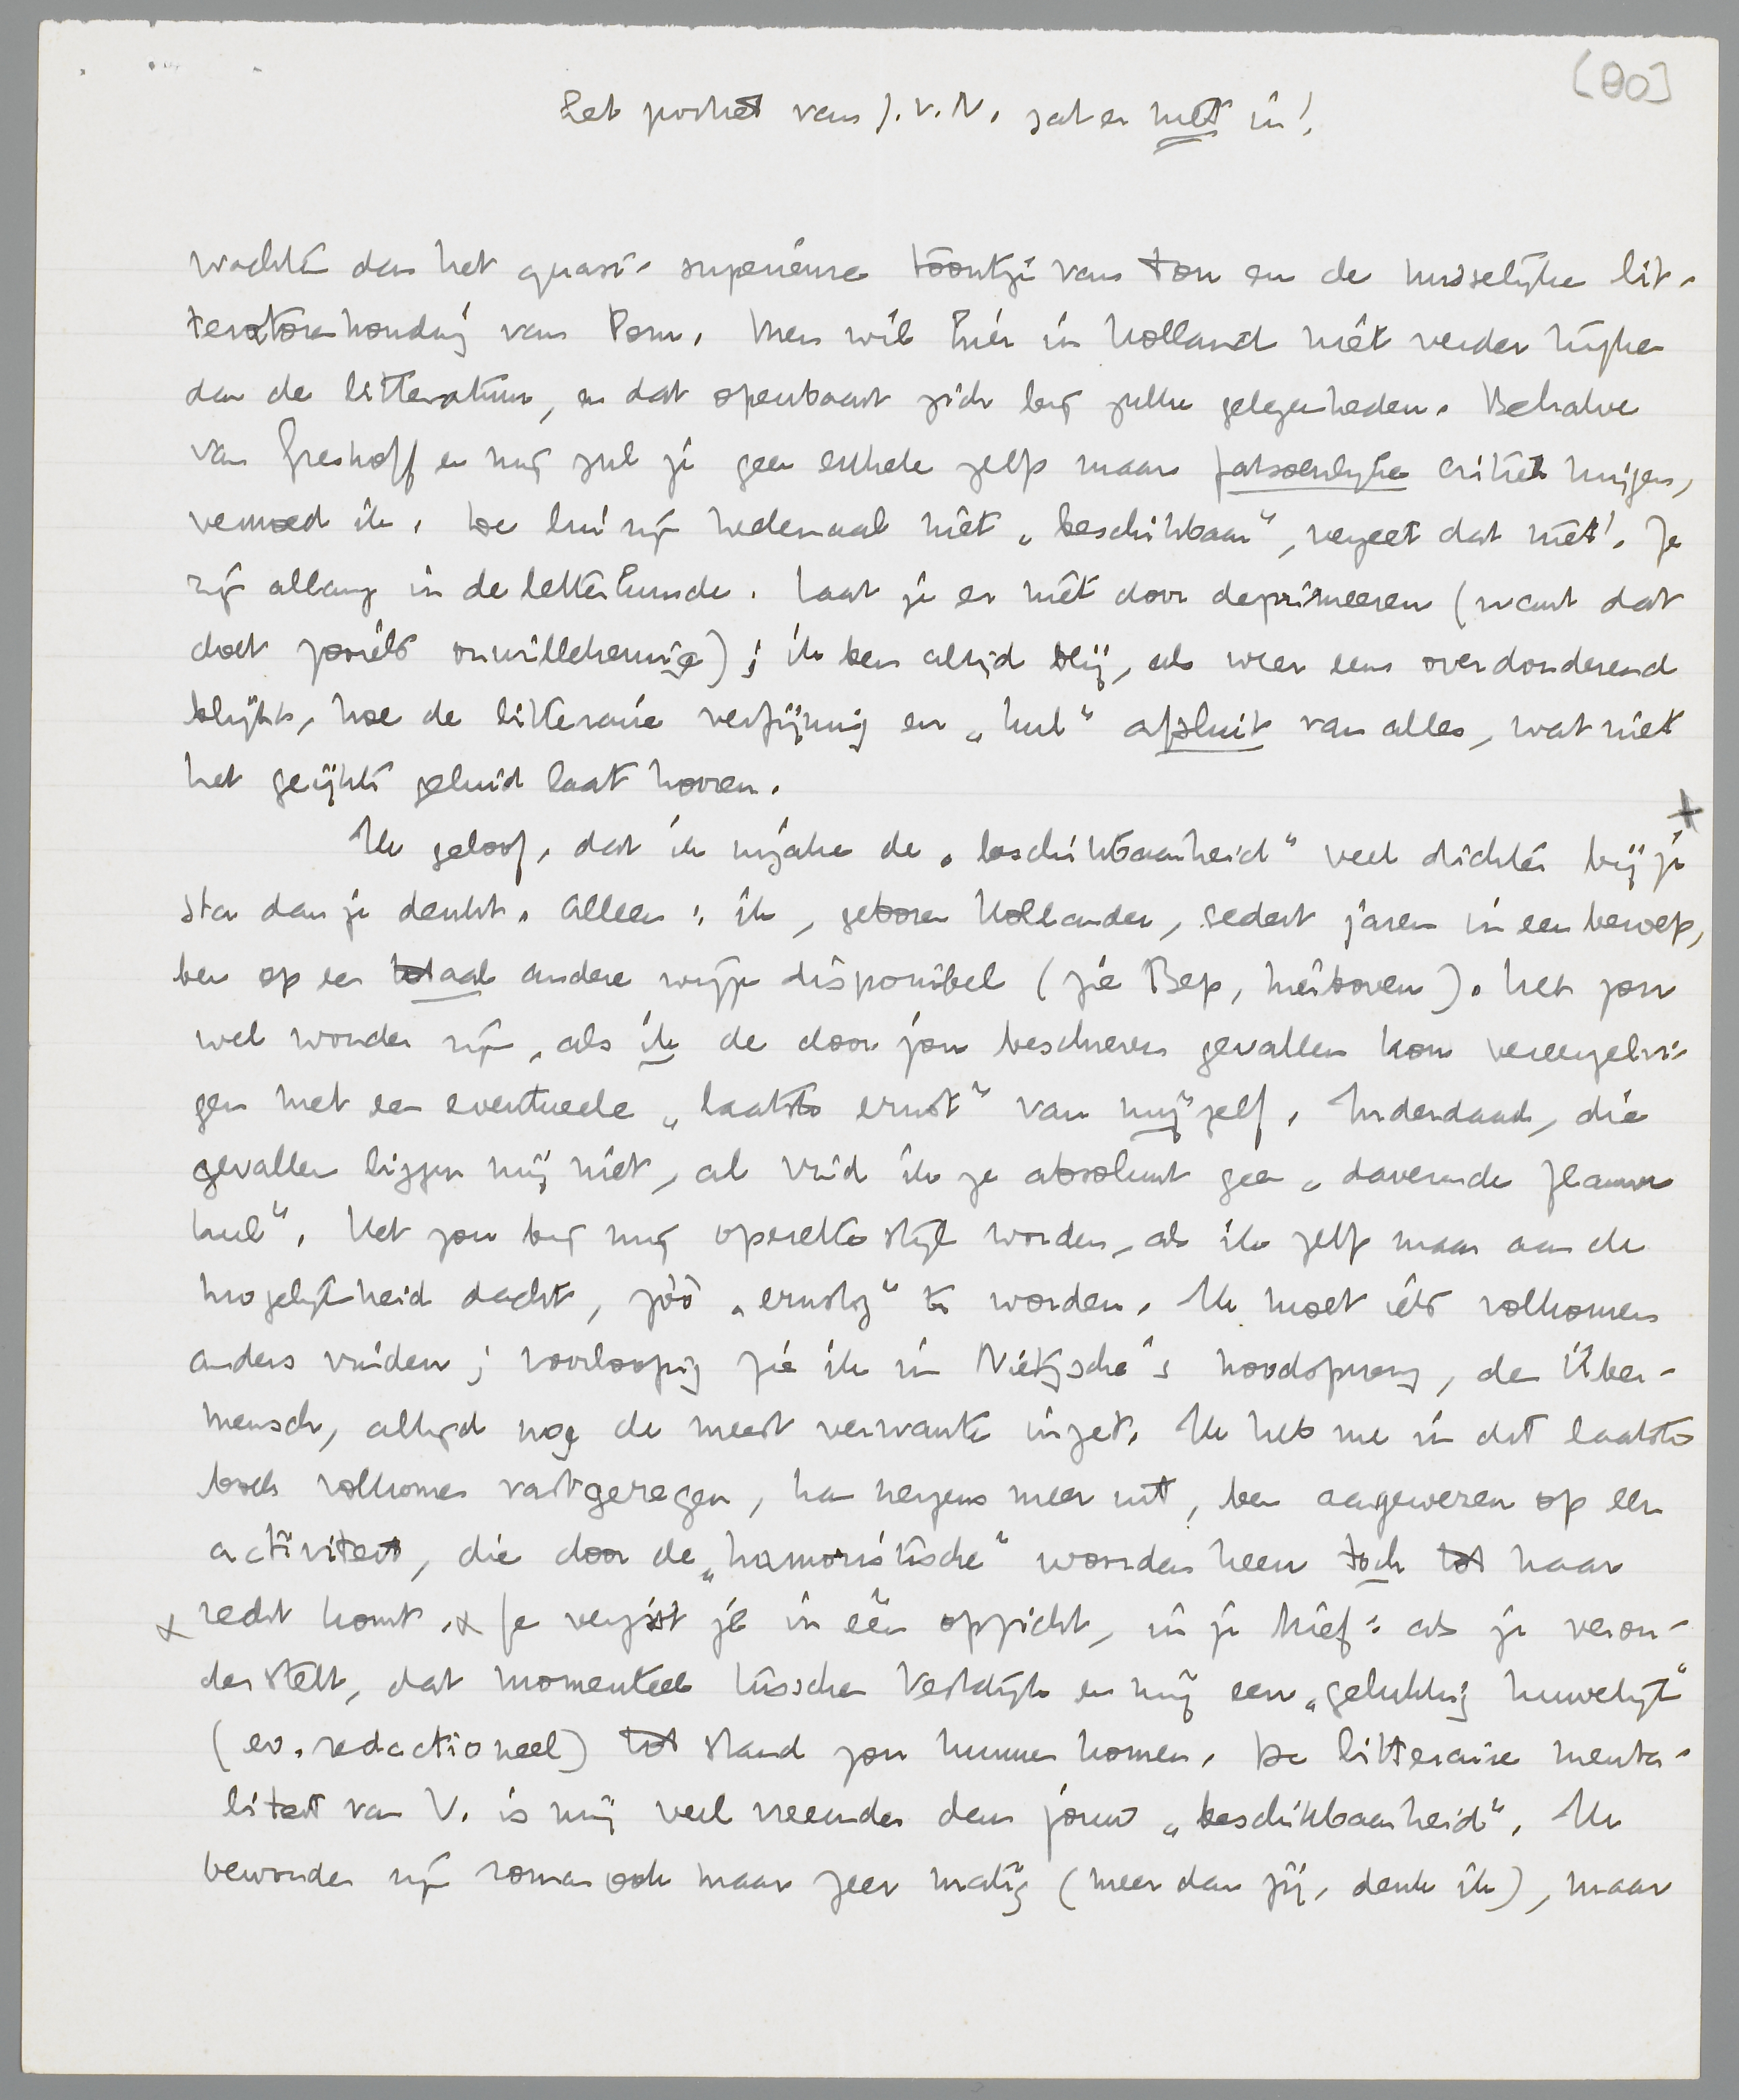 [80]
Het portret van J.v.N. zat er niet in!
wachten dan het quasi-superieure toontje van Ton en de misselijke lit-
teratorenhouding van Pom. Men wil hier in Holland niet verder kijken
dan de litteratuur, en dat openbaart zich bij zulke gelegenheden. Behalve
van Greshoff en mij zul je geen enkele zelfs maar fatsoenlijke critiek krijgen,
vermoed ik. De lui zijn heelemaal niet „beschikbaar", vergeet dat niet! Ze
zijn allang in de letterkunde. Laat je er niet door deprimeeren (want dat
doet zooiets onwillekeurig); ik ben altijd blij, als weer eens overdonderend
blijkt, hoe de litteraire verfijning en „kul" afsluit van alles, wat niet
het geijkte geluid laat hooren.
Ik geloof, dat ik inzake de „beschikbaarheid" veel dichter bij je +
sta dan je denkt. Alleen: ik, geboren Hollander, sedert jaren in een beroep,
ben op een totaal andere wijze disponibel (zie Bep, hierboven). Het zou
wel wonder zijn, als ik de door jou beschreven gevallen kon vereenzelvi-
gen met een eventueele „laatste ernst" van mijzelf. Inderdaad, die
gevallen liggen mij niet, al vind ik ze absoluut geen „daverende flauwe
kul". Het zou bij mij operette stijl worden, als ik zelfs maar aan de
mogelijkheid dacht, zóó „ernstig" te worden. Ik moet iets volkomen
anders vinden; voorloopig zie ik in Nietzsche's noodsprong, de Über-
mensch, altijd nog de meest verwante inzet. Ik heb me in dit laatste
boek volkomen vastgeregen, kan nergens meer uit, ben aangewezen op een
activiteit, die door de „humoristische" woorden heen toch tot haar
x recht komt. x Je vergist je in één opzicht, in je brief: als je veron-
derstelt, dat momenteel tusschen Vestdijk en mij een „gelukkig huwelijk"
(ev. redactioneel) tot stand zou kunnen komen. De litteraire menta-
liteit van V. is mij veel vreemder dan jouw „beschikbaarheid". Ik
bewonder zijn roman ook maar zeer matig (meer dan jij, denk ik), maar